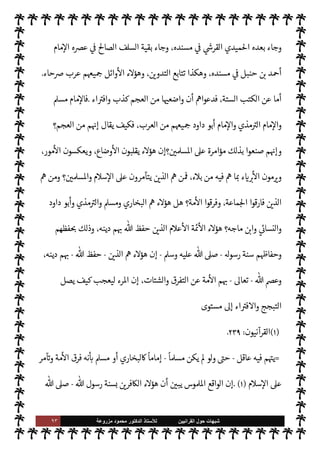 وجاء بعده الحميدي القرشي في مسنده، وجاء بقية السلف الصالح في عصره الإمام
أحمد بن حنبل في مسنده، وهكذا تتابع التدوين، وهؤلاء الأوائل جميعهم عرب صرحاء.
أما عن الكتب الستة، فدعواهم أن واضعيها من العجم كذب وافتراء .فالإمام مسلم
والإمام الترمذي والإمام أبو داود جميعهم من العرب، فكيف يقال إنهم من العجم؟
وإنهم صنعوا بذلك مؤامرة على المسلمين؟إن هؤلاء يقلبون الأوضاع، ويعكسون الأمور،
ويرمون الأبرياء بما هم فيه من بلاء، فمن هم الذين يتآمرون على الإسلام والمسلمين؟ ومن هم
الذين فارقوا الجماعة، وفرقوا الأمة؟ هل هؤلاء هم البخاري ومسلم والترمذي وأبو داود
والنسائي وابن ماجه؟ هؤلاء الأئمة الأعلام الذين حفظ الله بهم دينه، وذلك بحفظهم
وحفاظهم سنة رسوله - صلى الله عليه وسلم - إن هؤلاء هم الذين - حفظ الله - بهم دينه،
وعصم الله - تعالى - بهم الأمة عن التفرق والشتات، إن المرء ليعجب كيف يصل
التبجح والافتراء إلى مستوى
(١)القرآنيون: ٢٣٩.
=يتهم فيه عاقل - حتى ولو لم يكن مسلماً - إماماً كالبخاري أو مسلم بأنه فرق الأمة وتآمر
على الإسلام (١) .إن الواقع الملموس يبين أن هؤلاء الكافرين بسنة رسول الله - صلى الله
شبهات حول القرآنيين للأستاذ الدكتور محمود مزروعة ٩٣